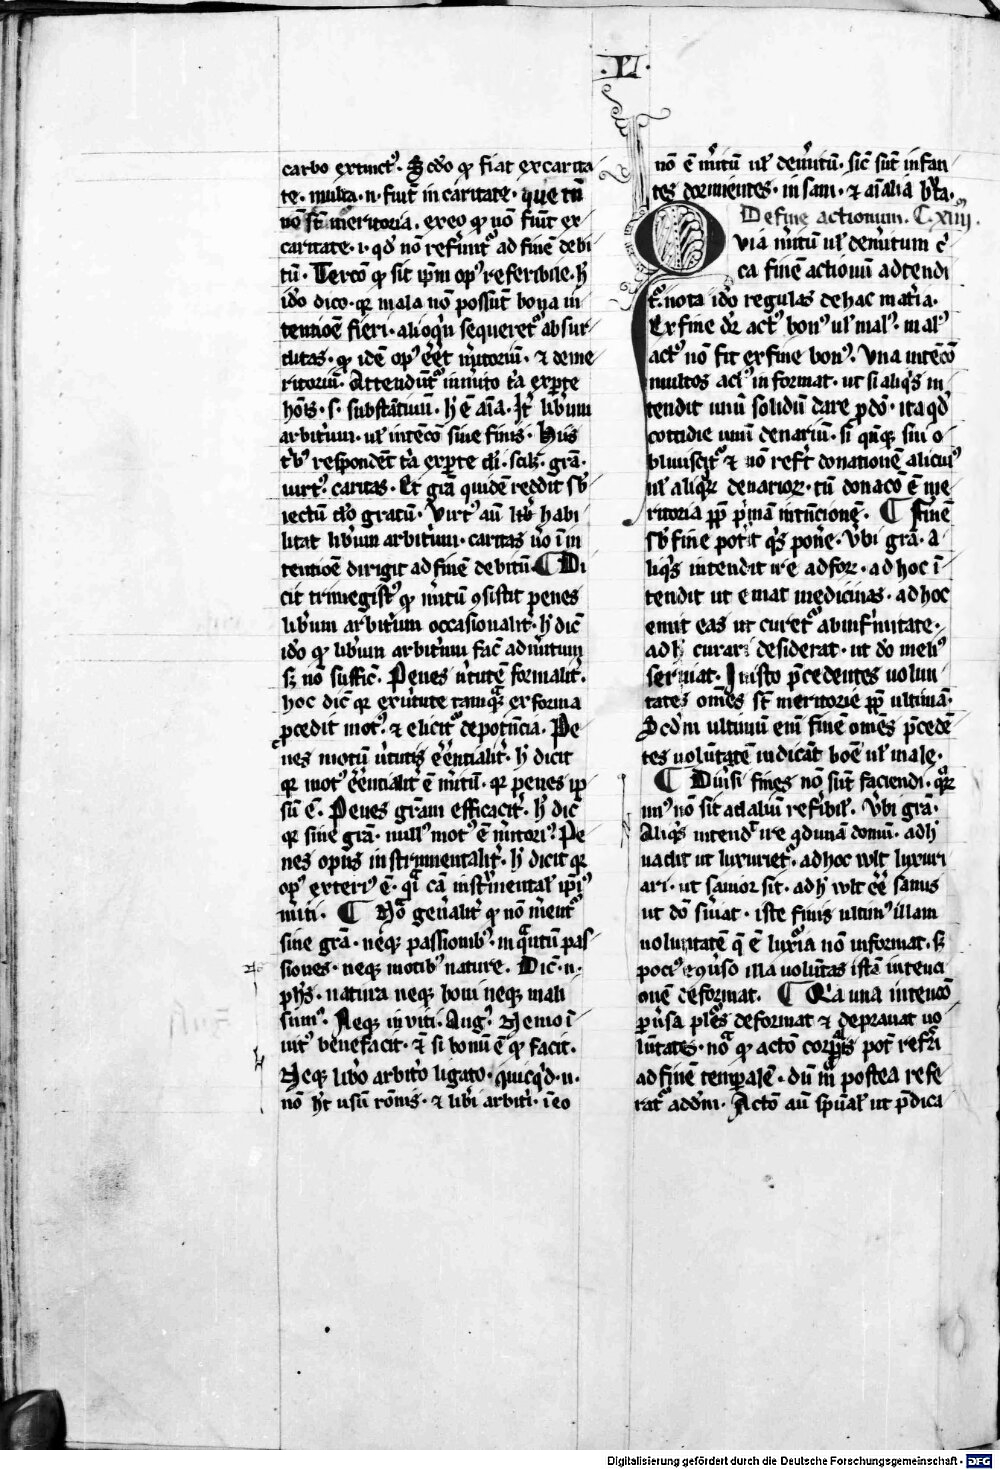 .VI.
carbo extinct᾽. Scd̄o ꝙ fiat ex carita
te. multa .n. fiūt in caritate. que tn̄
nō st̄ meritoria. ex eo ꝙ nō fiūt ex
caritate .i. qd̓ nō referunt᾽ ad finē debi
tū. Tercō ꝙ sit ip̄m op᾽ referibile. h̓
ido dico. qꝛ mala nō possūt bona in
tentioē fieri. alioqn̓ sequeret᾽ absur
ditas. ꝙ idē op᾽ eēt m̓itoriū. ⁊ deme
ritoriū. Attendūt᾽ in m̓ito t̓a ex p̱te
hōis. s. substātiuū. h̓ ē aīa. It̓ lib̓um
arbit̓ium. ul̓ intēcō siue finis. Hiis
t̓b᾽ respondēt t̓a ex p̱te di̓. scilꝫ. grā.
uirt᾽. caritas. Et grā quidē reddit sb̓
iectū dō gratū. Virt᾽ aū lib̓ habi
litat lib̓um arbit̓um. caritas ūo ī in
tentioē dirigit ad finē debitū. ¶ Di
cit trimegist᾽ ꝙ m̓itū ꝯsistit penes
lib̓um arbit̓ium occasionalit̓. h̓ dic̄
ido ꝙ lib̓um arbit̓ium fac̄ ad m̓itum
sꝫ nō suffic̄. Penes u̓tutē formalit̓.
hoc dic̄ qꝛ ex u̓tute tamqᷓ ex forma
p̱cedit mot᾽. ⁊ elicit᾽ de potn̄cia. Pe
nes motū u̓tutis eēntialit̓. h̓ dicit
qꝛ mot᾽ eēntialit̓ ē m̓itū. qꝛ penes ip̄
sū ē. Penes grām efficacit̓. h̓ dic̄
qꝛ sine grā. null᾽ mot᾽ ē m̓itori᾽. Pe
nes opus instrumentalit̓. h̓ dicit qꝛ
op᾽ exteri᾽ ē. qi̓ cā instr̓mental̓ ip̄i᾽
m̓iti. ¶ Nō gen̓alit̓ ꝙ nō m̓ent᾽
sine grā. neqꝫ passionib᾽. in qᷓntum pas
siones. neqꝫ motib᾽ nature. Dic̄ .n.
ph̄s. natura neqꝫ boni neqꝫ mali
sum᾽. Neqꝫ inuiti. Aug᾽. Nemo ī
uit᾽ benefacit. ⁊ si bonū ē ꝙ facit.
Neqꝫ lib̓o arbit̓o ligato. quicqͥd .n.
nō h̓t usū rōnis. ⁊ lib̓i arbit̓i. ī eo
nō ē m̓itū ul̓ dem̓itū. sic̄ sūt infan
tes dormientes. insani. ⁊ aīalia b̓ta.
De fine actionum. C. xiiij.
Quia m̓itū ul̓ dem̓itum c̓
ca finē actionū adtendi
t᾽. nota ido regulas de hac mat̓ia.
Ex fine dr̄ act᾽ bon᾽ ul̓ mal᾽. mal᾽
act᾽ nō fit ex fine bon᾽. Una intēcō
multos act᾽ informat. ut si aliqͥs in
tendit unū solidū dare p̱ dō. ita qd̓
cottidie unū denariū. si qn̄qꝫ sui o
bliuiscit᾽ ⁊ nō refert donationē alicui᾽
ul̓ aliqͦꝝ denarioꝝ. tū donacō ē me
ritoria ꝓp̱ p̓mā intn̄cionē. ¶ Finē
sb̓ fine potit qͥs pon̓e. Vbi grā. a
liqͥs intendit ire ad forꝝ. ad hoc ī
tendit ut emat medicinas. ad hoc
emit eas ut curet᾽ ab infirmitate.
ad h̓ curari desiderat. ut dō meli᾽
seruiat. In isto p̄cedentes uolun
tates om̄es st̄ meritorie ꝓp̱ ultimā.
Scd̄m ultimū eni̓ finē om̄es p̄cedē
tes uolūtatē iudicāt̓ boē ul̓ male.
¶ Diu̓si fines nō sūt faciendi. qͦꝝ
un᾽ nō sit ad aliū ref̓ibil̓. Vbi grā.
Aliqͥs intend̓ ire ꝗdunā domū. ad h̓
uadit ut luxuriet᾽. ad hoc wlt luxuri
ari. ut sanior sit. ad h̓ wlt eē sanus
ut dō s̓uiat. iste finis ultim᾽ illam
uoluntatē q̄ ē luxͥia nō informat. sꝫ
poci᾽ ecͦu̓so illa uolūtas istā intenci
onē deformat. ¶ Qͥa una intencō
p̱u̓sa pl̓es deformat ⁊ deprauat uo
lūtates. noᷓ ꝙ actō corp̱is pot̄ refr̓i
ad finē temp̱alē. dū m̊ postea refe
rat᾽ ad dm̄. Actō aū sp̄ual̓ ut p̄dica
Digitalisierung gefördert durch die Deutsche Forschungsgemeinschaft - DFG